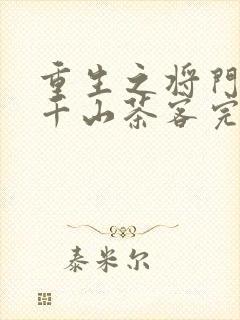 重生之将门
千山茶客完
泰米尔